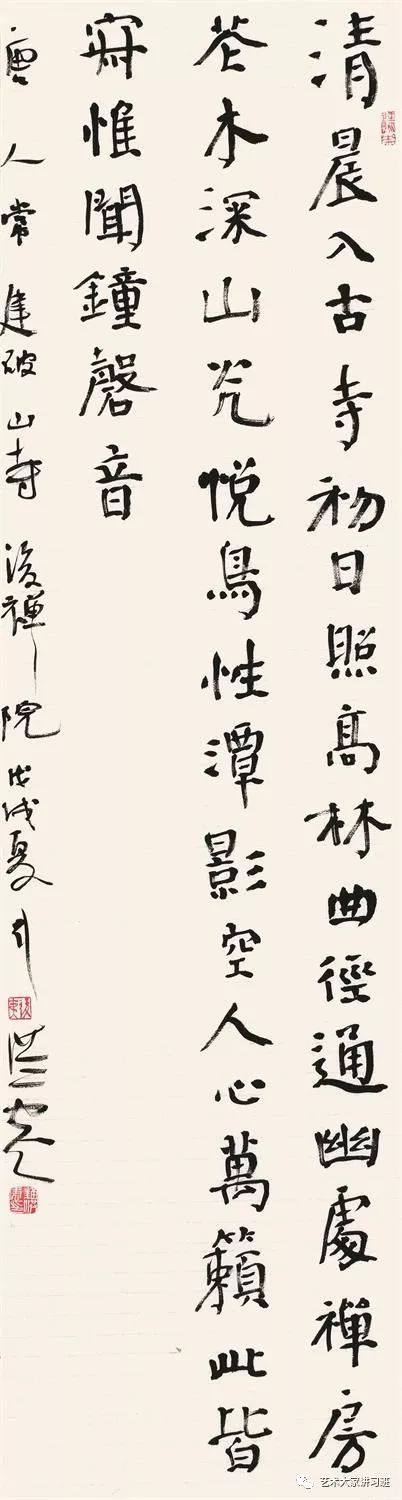 清晨入古寺初日照高林曲徑通幽處禪房
花木深山光悅鳥性潭影空人心萬籟此皆
寂惟聞鐘磬音
唐人常建破山寺後禪院戊戌夏月
艺术大家讲习班